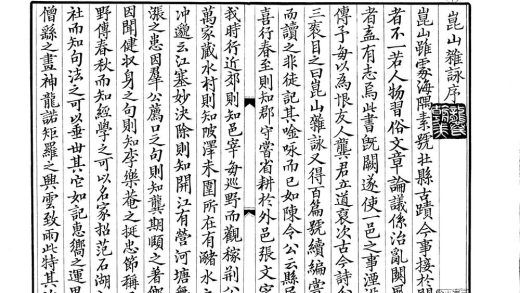 崑山雜詠序
崑山雖處海隅素號壯縣古蹟今事接於
者不一若人物習俗文章論議係治亂關風
者蓋有志焉此書既闕遂使一邑之事湮
傳予每以為恨友人龔君立道裒次古今詩
三袠目之曰崑山雜詠又得百篇號續編嘗
而讀之非徒記其唫咏而已如陳令公云縣民
喜行春至則知郡守嘗省耕於外邑張文
我時行近郊則知邑宰每巡野而觀稼荆公
萬家藏水村則知陂澤未圍所在有瀦水
冲邃云江塞妙決除則知開江有營河塘無
漲之患因羣公薦口之句則知龔期頤之著
因聞健収身之句則知李樂菴之挺忠節稱
野傳春秋而知經學之可以名家招范石湖
社而知句法之可以垂世其它如記惠嚮之運
僧繇之畫神龍諾矩羅之興雲致雨此特其